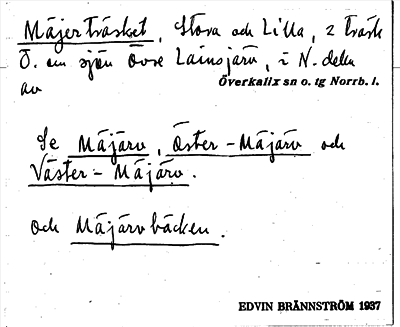 Mäjerträsket, Stora och Lilla, 2 träsk
Ö. om sjön Övre Lainsjärv, i N. delen
av
Överkalix sn o. tg Norrb. l.
Se Mäjärv, Öster-Mäjärv och
Väster-Mäjärv.
och Mäjärvbäcken.
EDVIN BRÄNNSTRÖM 1937